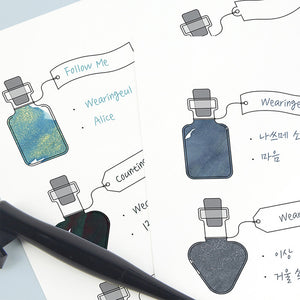 Follow Me
Wearingeul
Alice
Counting
12
Wearingeul
나쓰메 소
마음
Wea
이상
거울 속